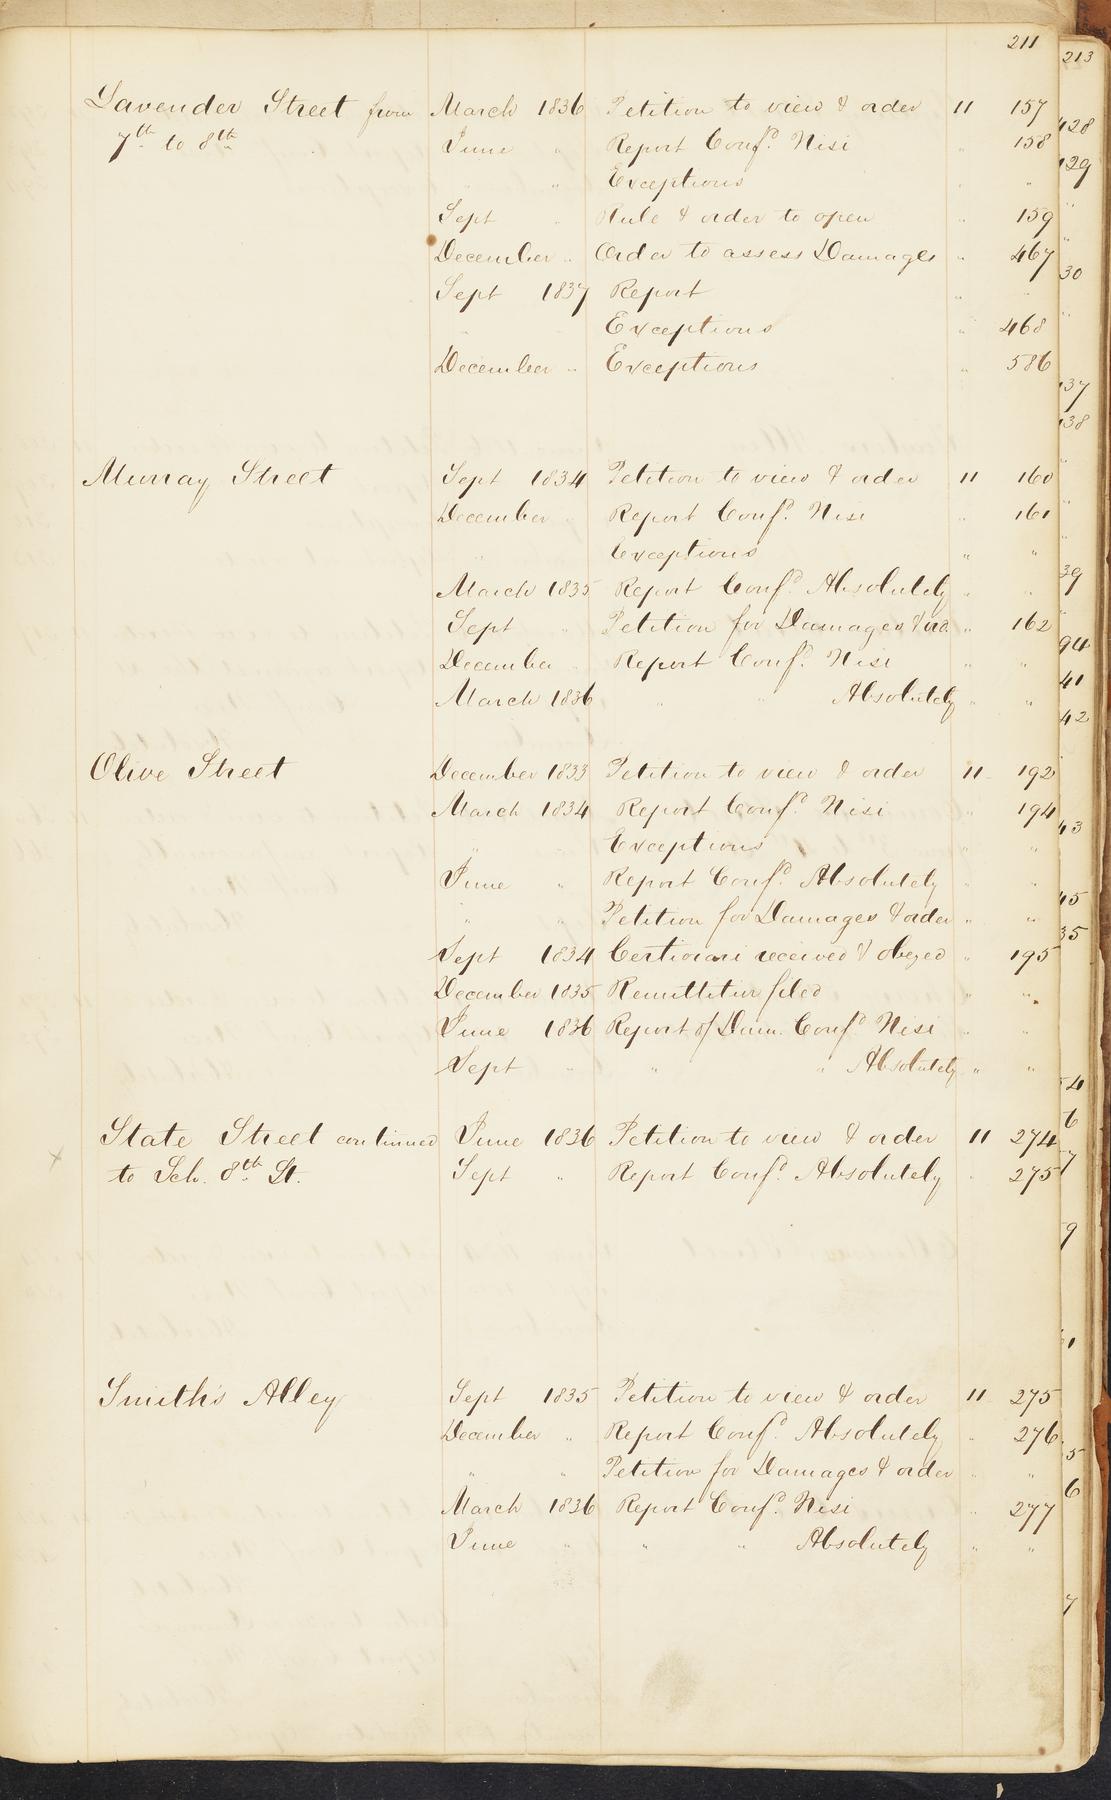 211
Lavender Street from March 1836 Petition to view & order 11 157
7th to 8th June " Report Confd. Nisi " 158
" " Exceptions " "
Sept " Rule & order to open " 159
December " Order to assess Damages " 467
Sept 1837 Report " "
" " Exceptions " 468
December " Exceptions " 586
Murray Street Sept 1834 Petition to view & order 11 160
December " Report Confd. Nisi " 161
" Exceptions " "
March 1835 Report Confd Absolutely " "
Sept " Petition for Damages & ord. " 162
December " Report Confd. Nisi " "
March 1836 " " Absolutely " "
Olive Street December 1833 Petition to view & order 11 192
March 1834 Report Confd Nisi " 194
" Exceptions " "
June " Report Confd. Absolutely " "
" " Petition for Damages & order " "
Sept 1834 Certiorari received & obeyed " 195
December 1835 Remittitur filed " "
June 1836 Report of Dam. Confd Nisi " "
Sept " " " Absolutely " "
State Street continued June 1836 Petition to view & order 11 274
x to Sch. 8th St. Sept " Report Confd. Absolutely " 275
Smith's Alley Sept 1835 Petition to view & order 11 275
December " Report Confd. Absolutely " 276
" " Petition for Damages & order " "
March 1836 Report Confd. Nisi " 277
June " " " Absolutely " "
213
128
129
30
37
38
39
94
41
42
43
45
35
54
6
7
9
61
5
6
7